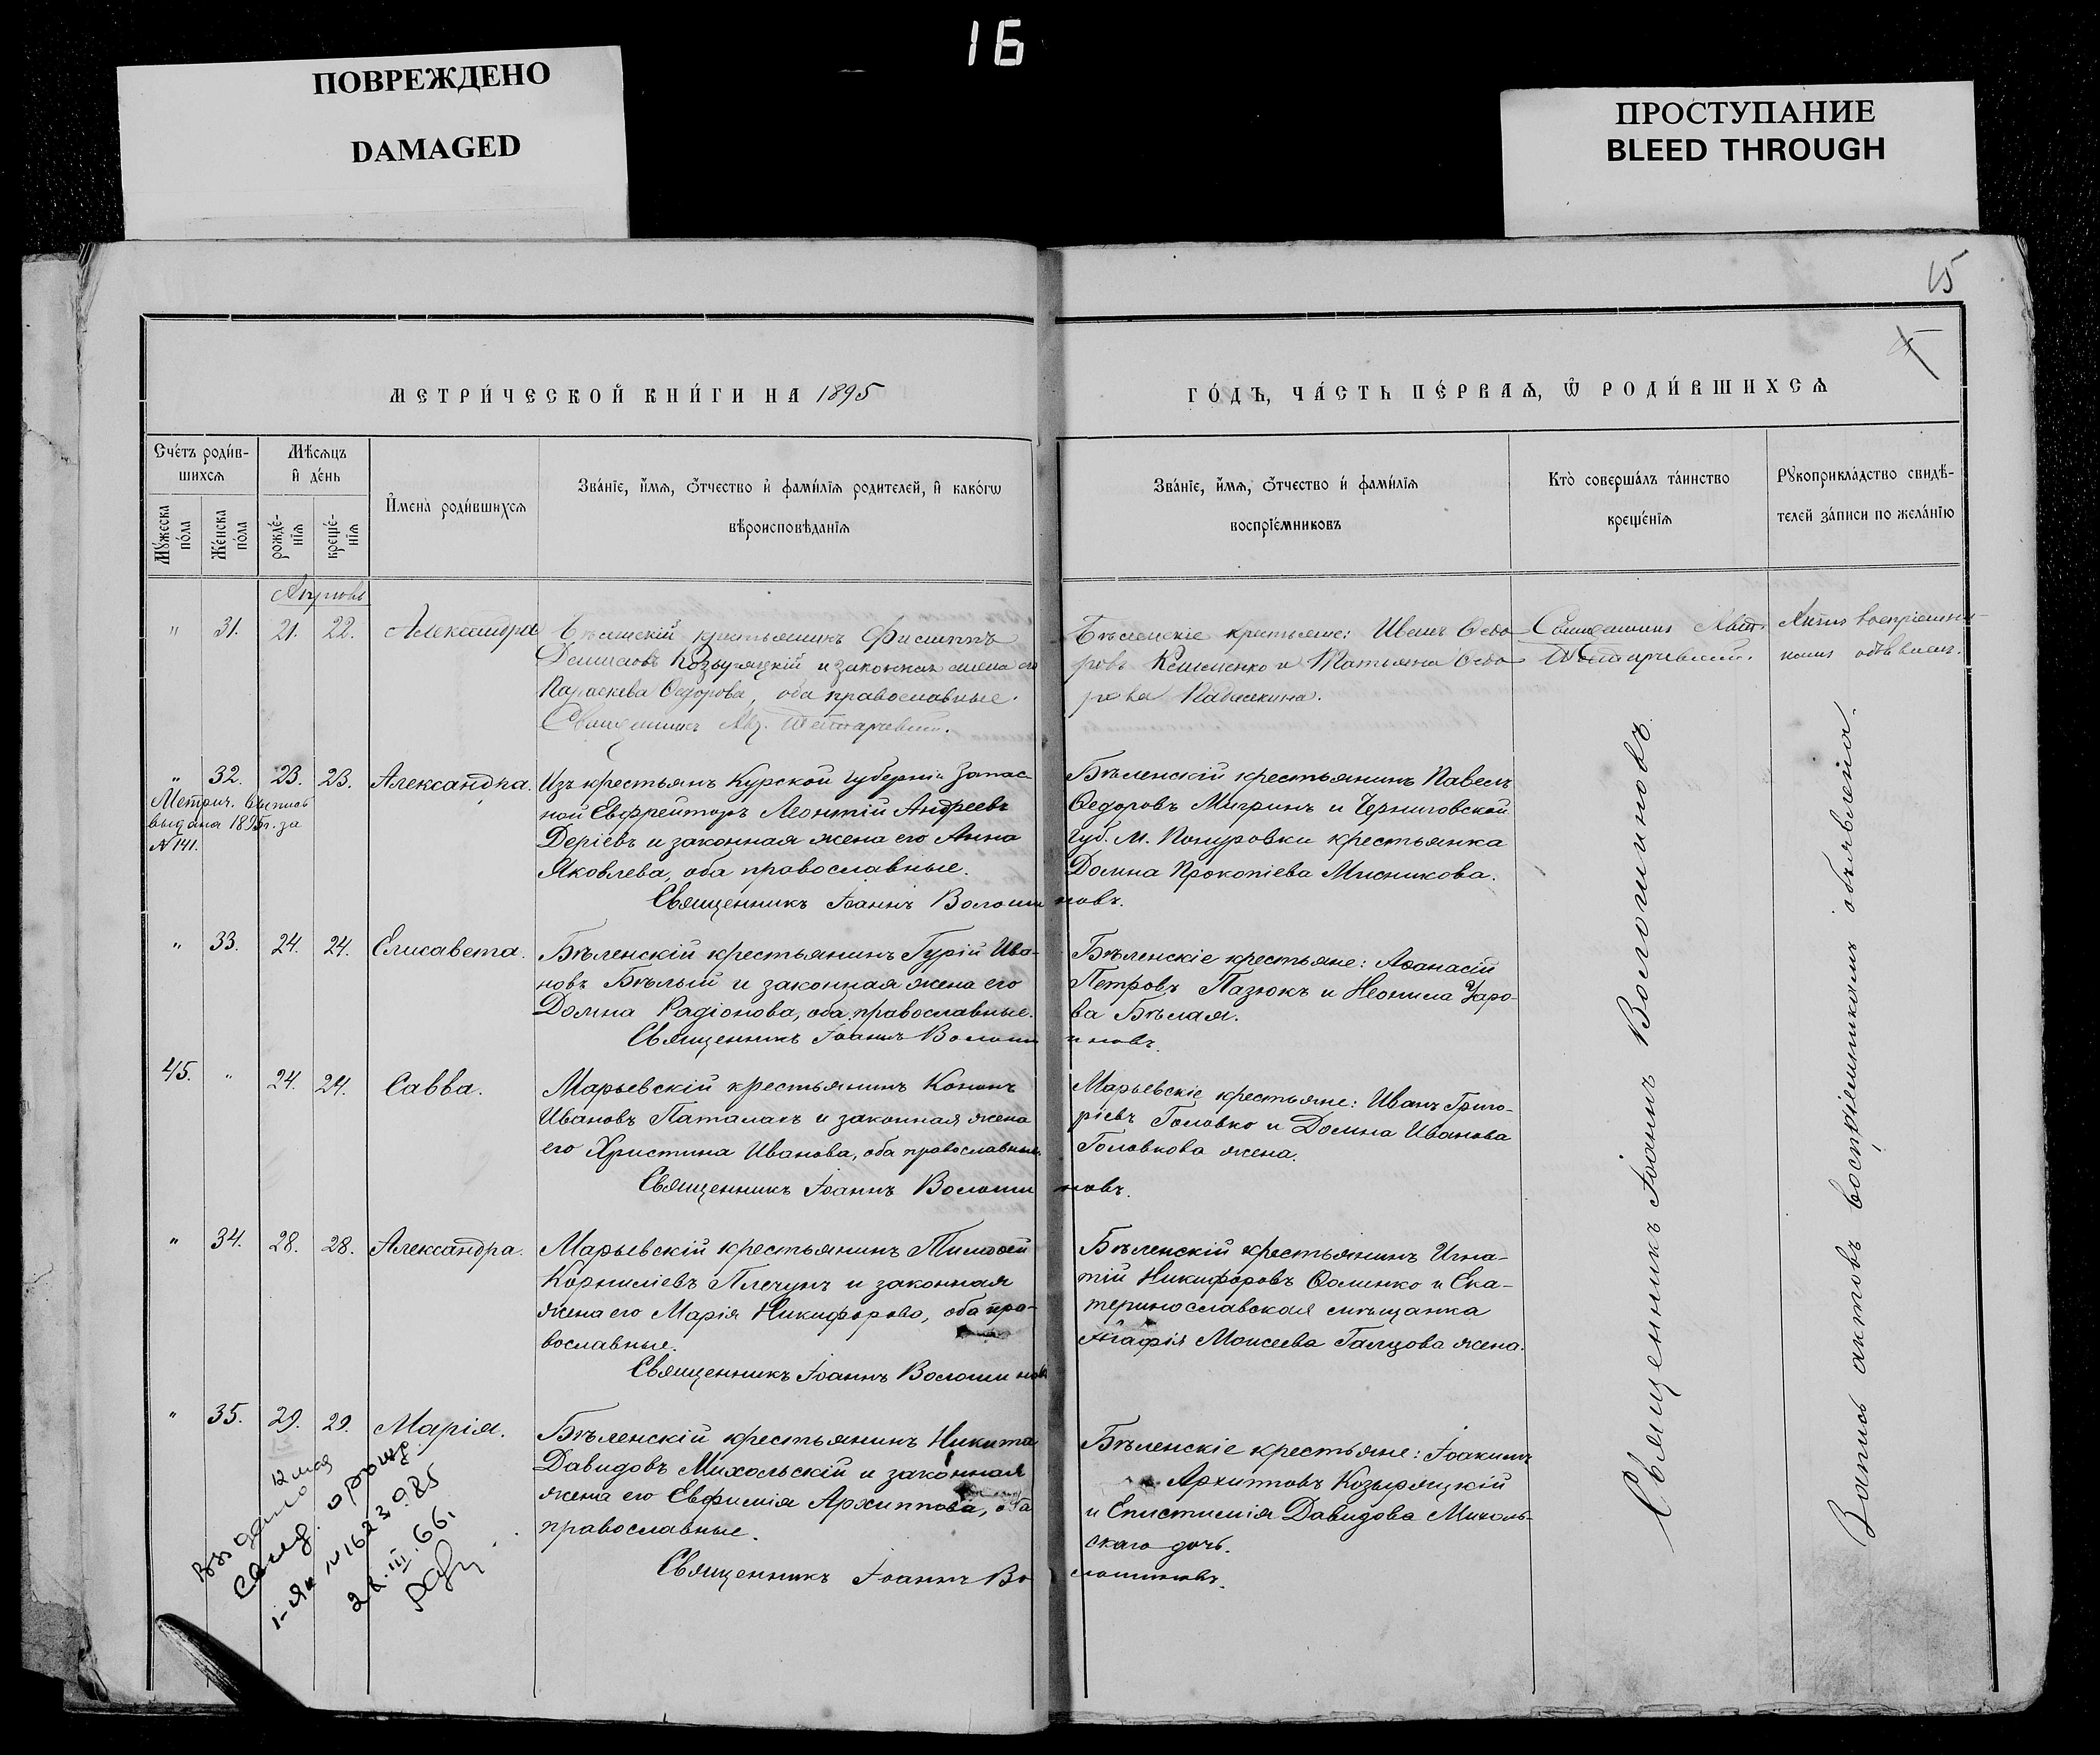 16
ПОВРЕЖДЕНО
DAMAGED
ПРОСТУПАНИЕ
BLEED THROUGH
15
МЕТРИ́ЧЕСКОЙ КНИ́ГИ НА 1895
ГО́ДЪ, ЧА́СТЬ ПЕ́РВАѦ, Ѡ҆ РОДИ́ВШИХСѦ
Сче́тъ роди́в-
шихсѧ
Мꙋ́жеска по́ла
Же́нска по́ла
Мѣ́сѧцъ
и҆ де́нь
рожде́-
нїѧ
креще́-
нїѧ
И҆мена̀ роди́вшихсѧ
Зва́нїе, и҆́мѧ, ѻ҆́тчество и҆ фами́лїѧ роди́телей, и҆ како́гѡ
вѣроисповѣ́данїѧ
Зва́нїе, и҆́мѧ, ѻ҆́тчество и҆ фами́лїѧ
воспрїе́мниковъ
Кто̀ соверша́лъ та́инство
креще́нїѧ
Рꙋкоприкла́дство свидѣ́-
телей за́писи по жела́нїю
Апрѣль
" 31. 21. 22. Александра
Бѣленскій крестьянинъ Филиппъ
и законная жена его
Параскева Ѳедорова, оба православные.
Священникъ
Бѣленскіе крестьяне: Иванъ Ѳедо-
ровъ и Татьяна Ѳедо-
рова
Священникъ
Актъ воспріемни-
камъ объявленъ.
" 32. 23. 23. Александра.
Метрич. выпись
выдана 1895 г. за
№ 141.
Изъ крестьянъ Курской губерніи запас-
ной Ефрейторъ Леонтій Андреевъ
Деріевъ и законная жена его Анна
Яковлева, оба православные.
Священникъ Іоаннъ Волошиновъ.
Бѣленскій крестьянинъ Павелъ
Ѳедоровъ Мигринъ и Черниговской
губ. м. Понуровки крестьянка
Домна Прокопіева Мисникова.
" 33. 24. 24. Елисавета.
Бѣленскій крестьянинъ Гурій Ива-
новъ Бѣлый и законная жена его
Домна Радіонова, оба православные.
Священникъ Іоаннъ Волошиновъ.
Бѣленскіе крестьяне: Аѳанасій
Петровъ Пазюкъ и Неонила
ва Бѣлая.
45. " 24. 24. Савва.
Марьевскій крестьянинъ Кононъ
Ивановъ Паталахъ и законная жена
его Христина Иванова, оба православные.
Священникъ Іоаннъ Волошиновъ.
Марьевскіе крестьяне: Иванъ Григо-
ріевъ Головко и Домна Иванова
Головкова жена.
" 34. 28. 28. Александра.
Марьевскій крестьянинъ Тимоѳей
Корниліевъ Плечунъ и законная
жена его Марія Никифорова, оба пра-
вославные.
Священникъ Іоаннъ Волошиновъ
Бѣленскій крестьянинъ Игна-
тій Никифоровъ Ѳоменко и Ека-
теринославская мѣщанка
Агафія Моисеева Галцова жена.
" 35. 29. 29. Марія.
Бѣленскій крестьянинъ Никита
Давидовъ Михольскій и законная
жена его Евфимія Архиппова, оба
православные.
Священникъ Іоаннъ Волошиновъ.
Бѣленскіе крестьяне: Іоакимъ
Архипповъ Козыряцкій
и Епистимія Давидова Михоль-
скаго дочь.
12 мая
Выдано
свид. о рожд.
1-ЯИ № 1623985
28.III.66.
Священникъ Іоаннъ Волошиновъ
Запись актовъ воспріемникамъ объявлена.